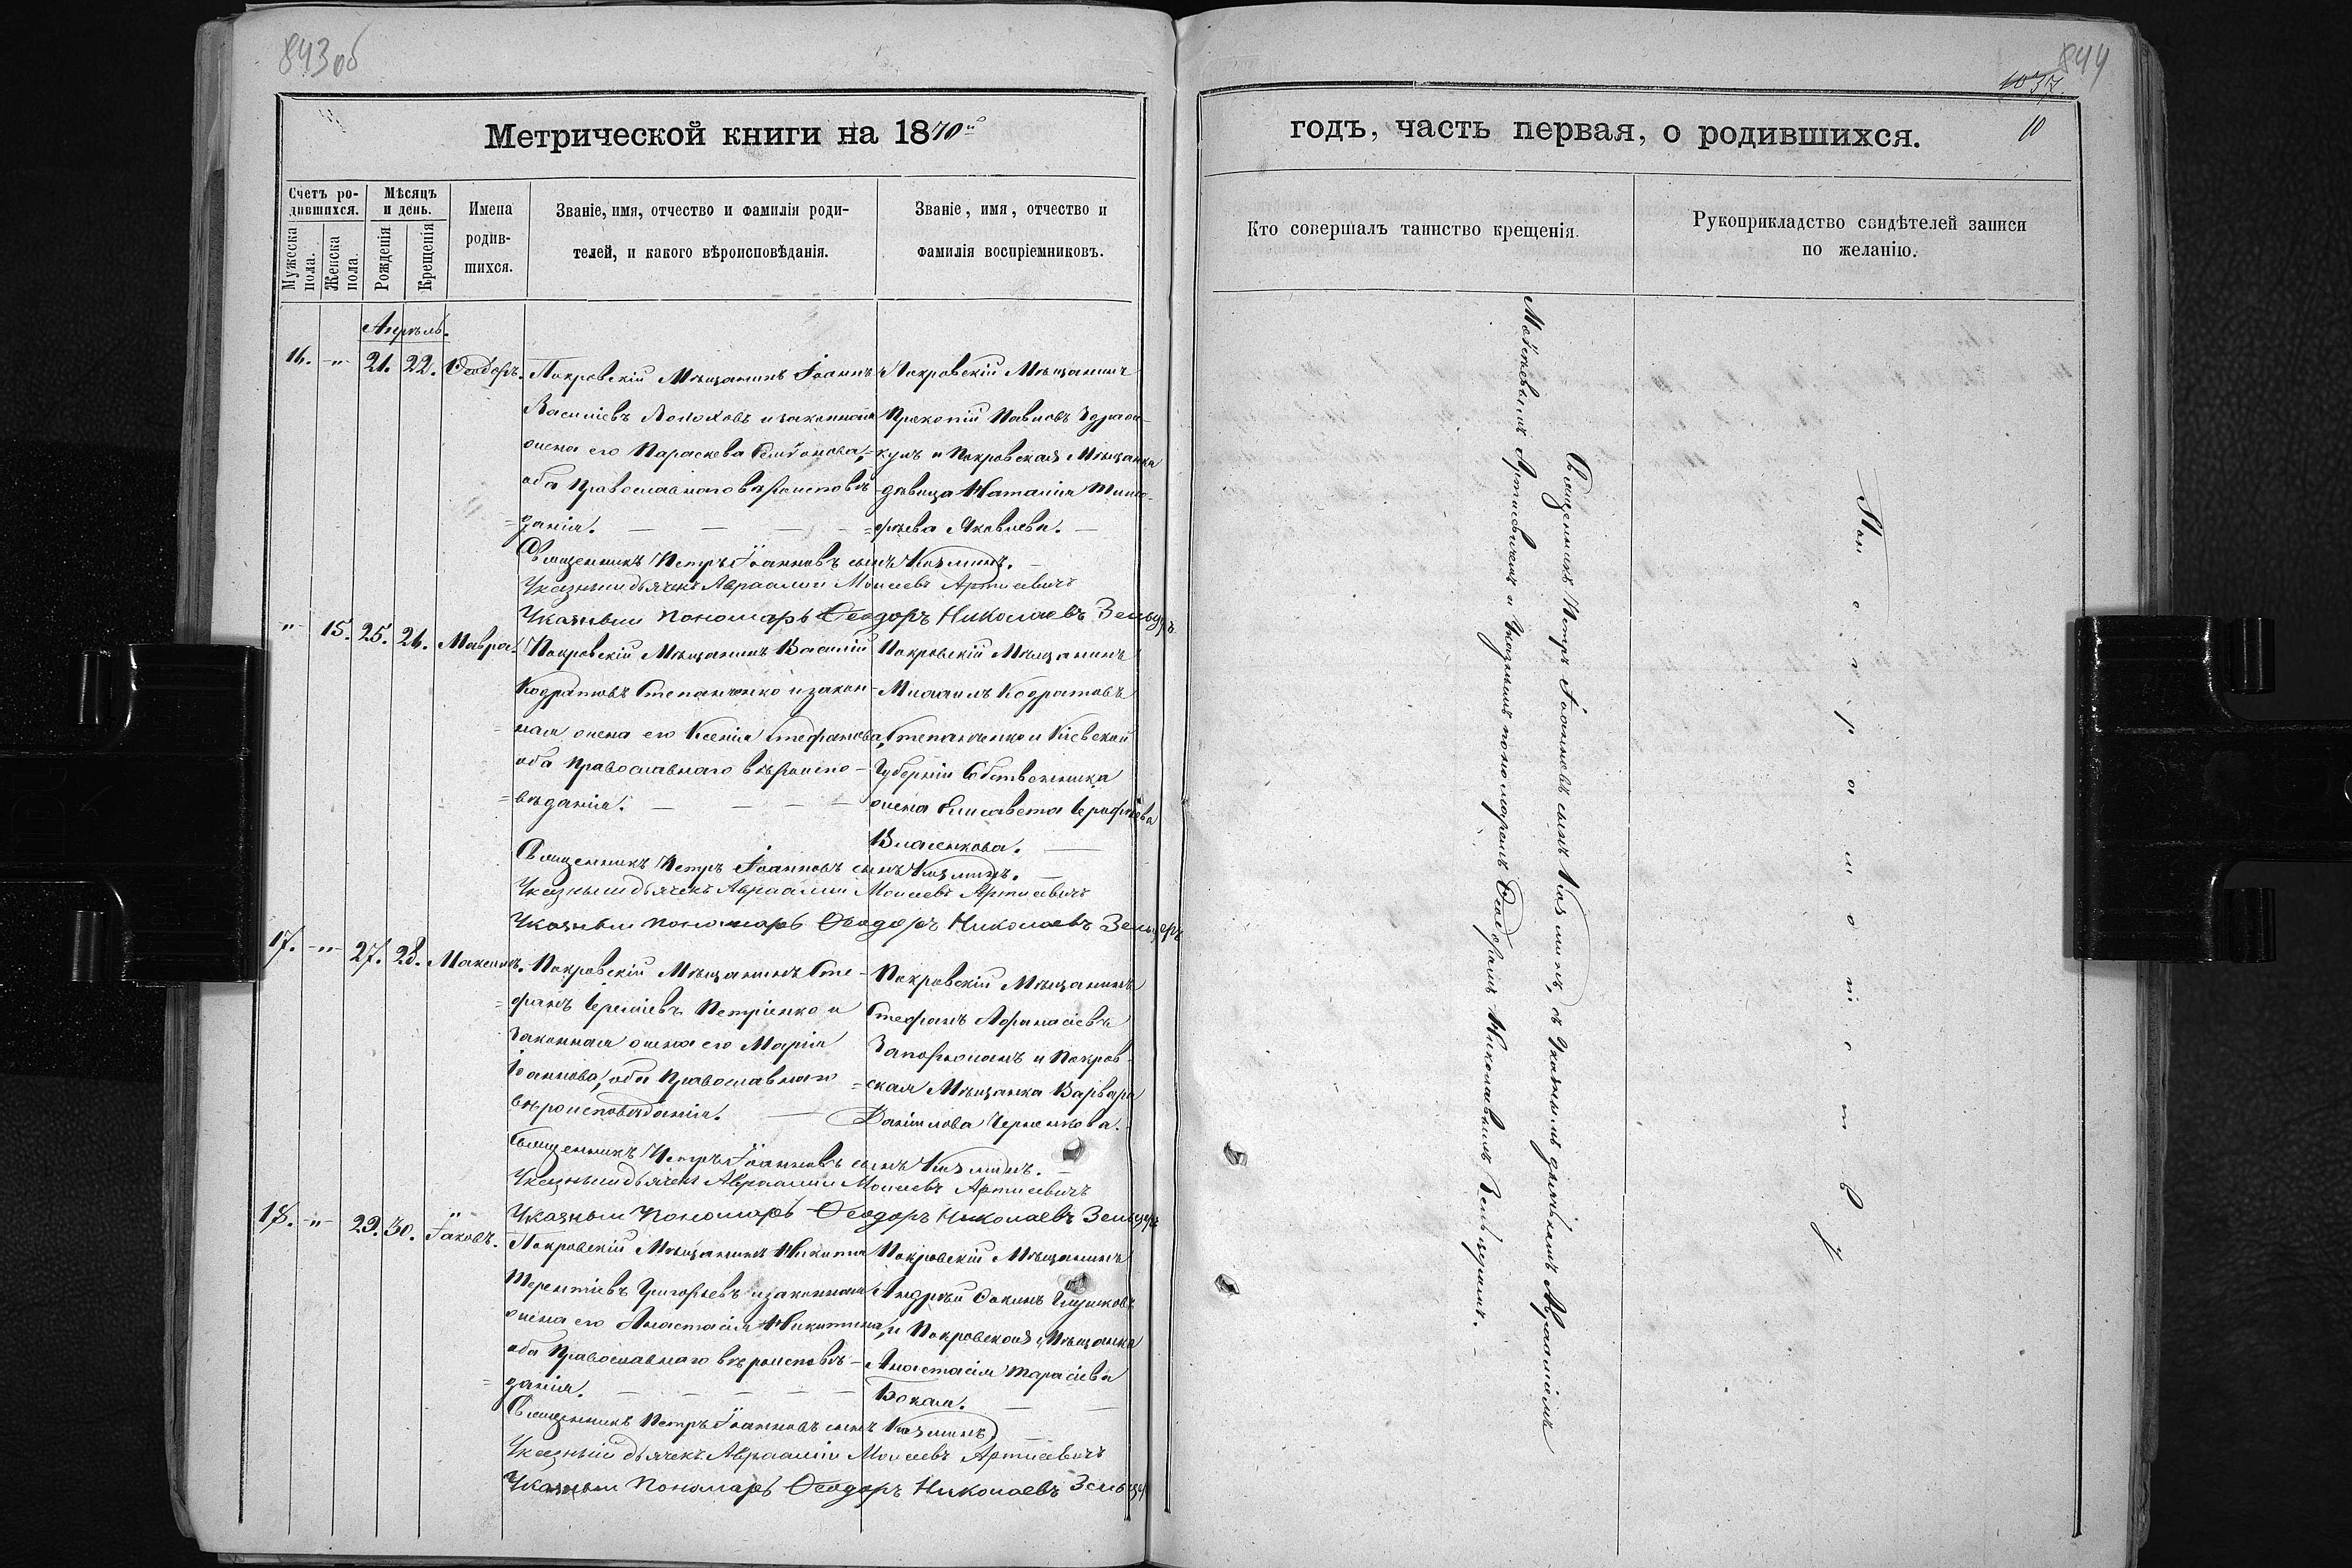 843об
Метрической книги на 1870й
Счетъ родившихся.
Мѣсяцъ и день.
Мужеска пола.
Женска пола.
Рожденія
Крещенія
Имена родившихся.
Званіе, имя, отчество и фамилія родителей, и какого вѣроисповѣданія.
Званіе, имя, отчество и фамилія воспріемниковъ.
Апрѣль.
16. -"- 21. 22. Ѳеодоръ.
Покровскій Мѣщанинъ Іоаннъ
Василіевъ Волоховъ и законная
жена его Параскева
оба Православнаго вѣроисповѣ-
=данія.
Покровскій Мѣщанинъ
Прокопій Павловъ
и Покровская Мѣщанка
дѣвица Наталія Тимо-
=фѣева Яковлева.
Священникъ Петръ Іоанновъ сынъ Козминъ.
Указный дьячекъ Авраамій Моисеевъ Артисевичъ
Указный пономарь Ѳеодоръ Николаевъ Зельцеръ
-"- 15. 25. 26. Мавра.
Покровскій Мѣщанинъ Василій
Кодратовъ Степаненко и закон-
=ная жена его Ксенія Стефанова,
оба Православнаго вѣроиспо-
=вѣданія.
Покровскій Мѣщанинъ
Михаилъ Кодратовъ
Степаненко и Кіевской
Губерніи Собственника
жена Елисавета Ерофѣева
Власенкова.
Священникъ Петръ Іоанновъ сынъ Козминъ.
Указный дьячекъ Авраамій Моисеевъ Артисевичъ
Указный пономарь Ѳеодоръ Николаевъ Зельцеръ
17. -"- 27. 28. Максимъ.
Покровскій Мѣщанинъ Сте-
=фанъ Іереміевъ Петріенко и
законная жена его Марія
Іоаннова, оба Православнаго
вѣроисповѣданія.
Покровскій Мѣщанинъ
Стефанъ Афанасіевъ
и Покров-
=ская Мѣщанка Варвара
Даніилова Черненкова.
Священникъ Петръ Іоанновъ сынъ Козминъ.
Указный дьячекъ Авраамій Моисеевъ Артисевичъ
Указный пономарь Ѳеодоръ Николаевъ Зельцеръ
18. -"- 29. 30. Іаковъ.
Покровскій Мѣщанинъ Никита
Терентіевъ Григорьевъ и законная
жена его Анастасія Никитина,
оба Православнаго вѣроисповѣ-
=данія.
Покровскій Мѣщанинъ
Андрей Глушковъ
и Покровская Мѣщанка
Анастасія Тарасіева
Бокая.
Священникъ Петръ Іоанновъ сынъ Козминъ
Указный дьячекъ Авраамій Моисеевъ Артисевичъ
Указный пономарь Ѳеодоръ Николаевъ Зельцеръ
844
1037.
10
годъ, часть первая, о родившихся.
Кто совершалъ таинство крещенія.
Рукоприкладство свидѣтелей записи по желанію.
Священникъ Петръ Іоанновъ сынъ Козминъ, съ Указнымъ дьячкомъ Авраамиемъ
Моисеевымъ Артисевичемъ и Указнымъ пономаремъ Ѳеодоромъ Николаевымъ Зельцеромъ.
По безграмотству